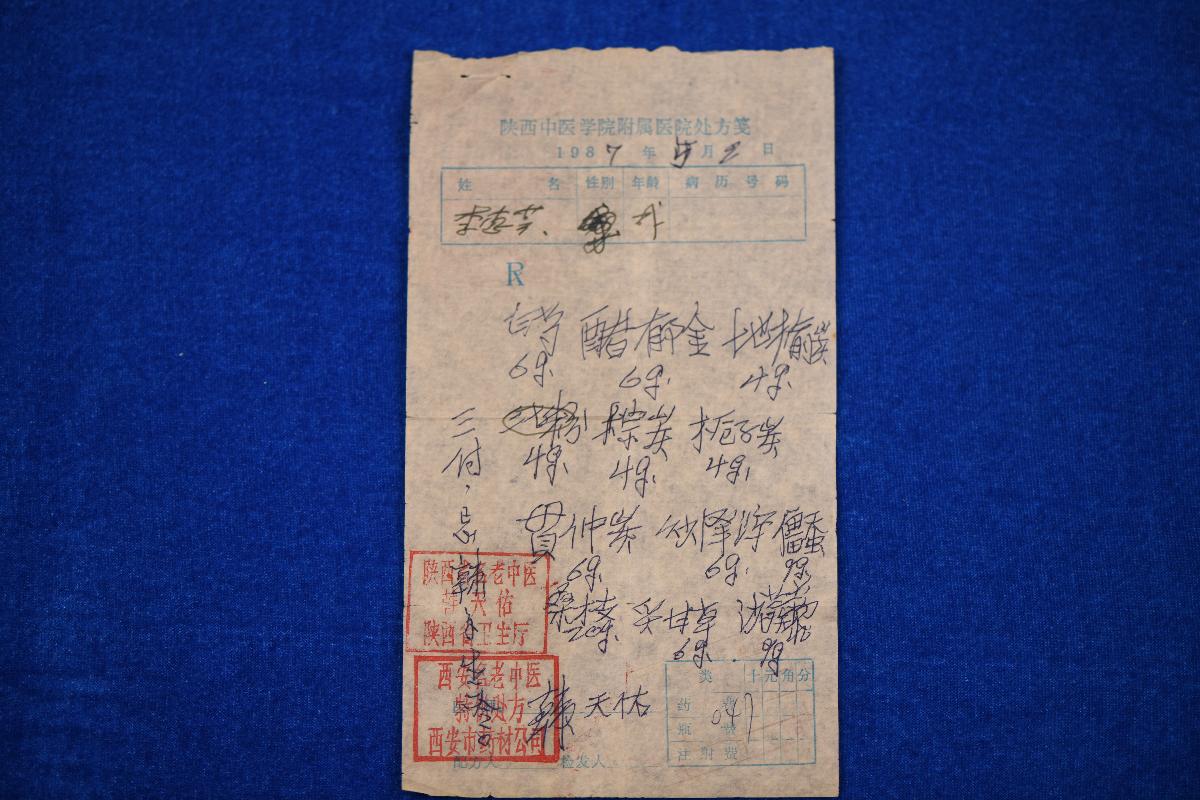 陕西中医学院附属医院处方笺
1987年5月2日
姓名 性别 年龄 病历号码
R
白芍 醋郁金 地榆炭
6g. 6g. 4g.
粉 棕炭 栀子炭
4g. 4g. 4g.
贯仲炭 炒泽泻
6g. 6g. 9g.
桑枝 炙甘草
20g. 6g. 9g.
三付,忌辣
陕西省名老中医
韩天佑
陕西省卫生厅
西安名老中医
特约处方
西安市药材公司
韩天佑
类 十元角分
药费 047
瓶费
注射费
配方人 检发人